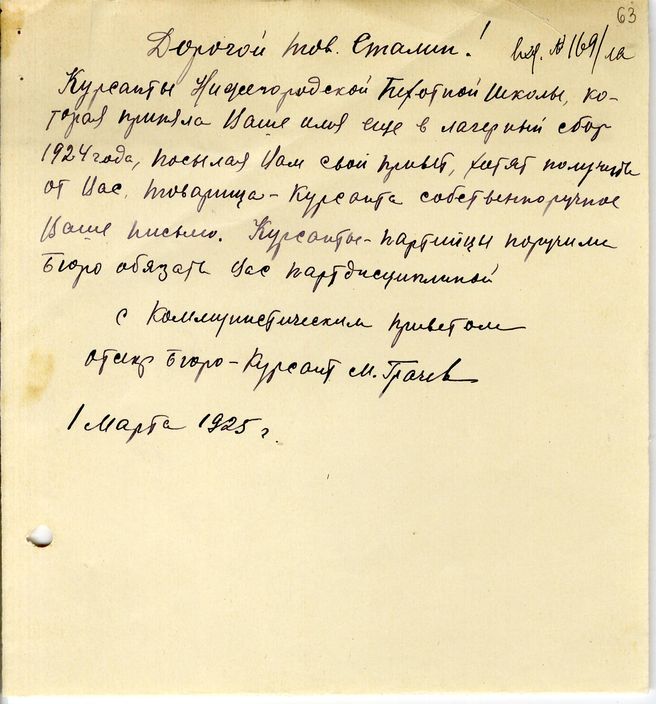 63
Дорогой тов. Сталин! вх. № 169/
Курсанты Нижегородской Пехотной Школы, ко-
торая приняла Ваше имя еще в лагерный сбор
1924 года, посылая Вам свой привет, хотят получить
от Вас, товарища-Курсанта собственноручное
Ваше письмо. Курсанты-партийцы поручили
Бюро обязать Вас партдисциплиной
с Коммунистическим приветом
отсекр Бюро-Курсант М. Грачев
1 Марта 1925 г.